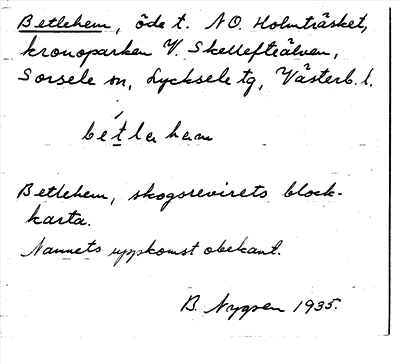 Betlehem, öde t. NO. Holmträsket,
kronoparken V. Skellefteälven,
Sorsele sn, Lycksele tg, Västerb. l.
betlaham
Betlehem, skogsrevirets block-
karta.
Namnets uppkomst obekant.
B. Nygren 1935.